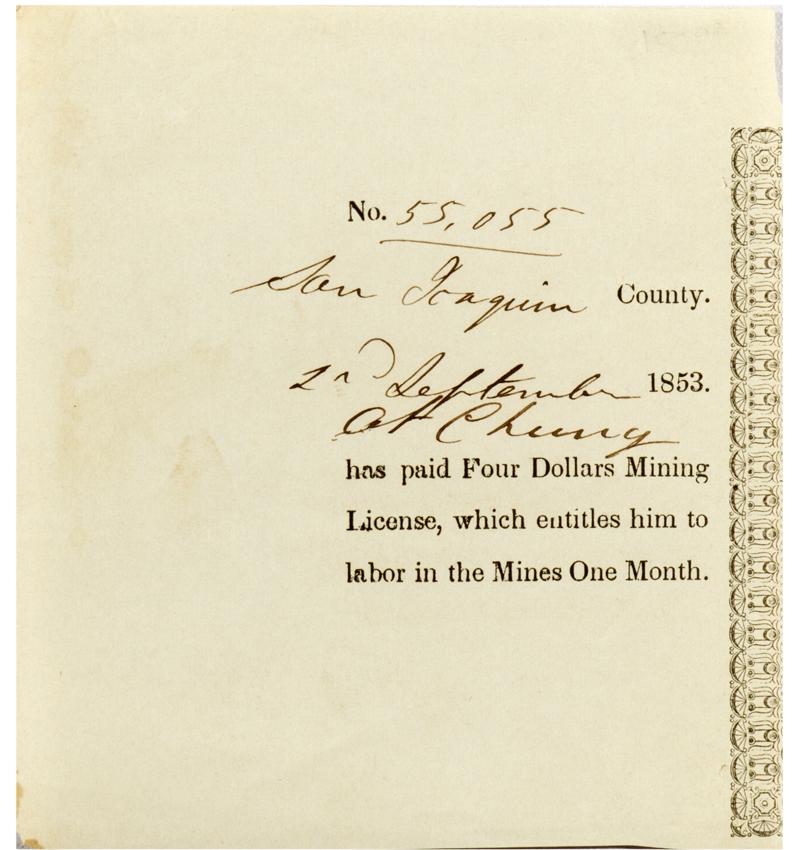 No. 55,055
San Joaquin County.
2nd September 1853.
At Chung
has paid Four Dollars Mining
License, which entitles him to
labor in the Mines One Month.